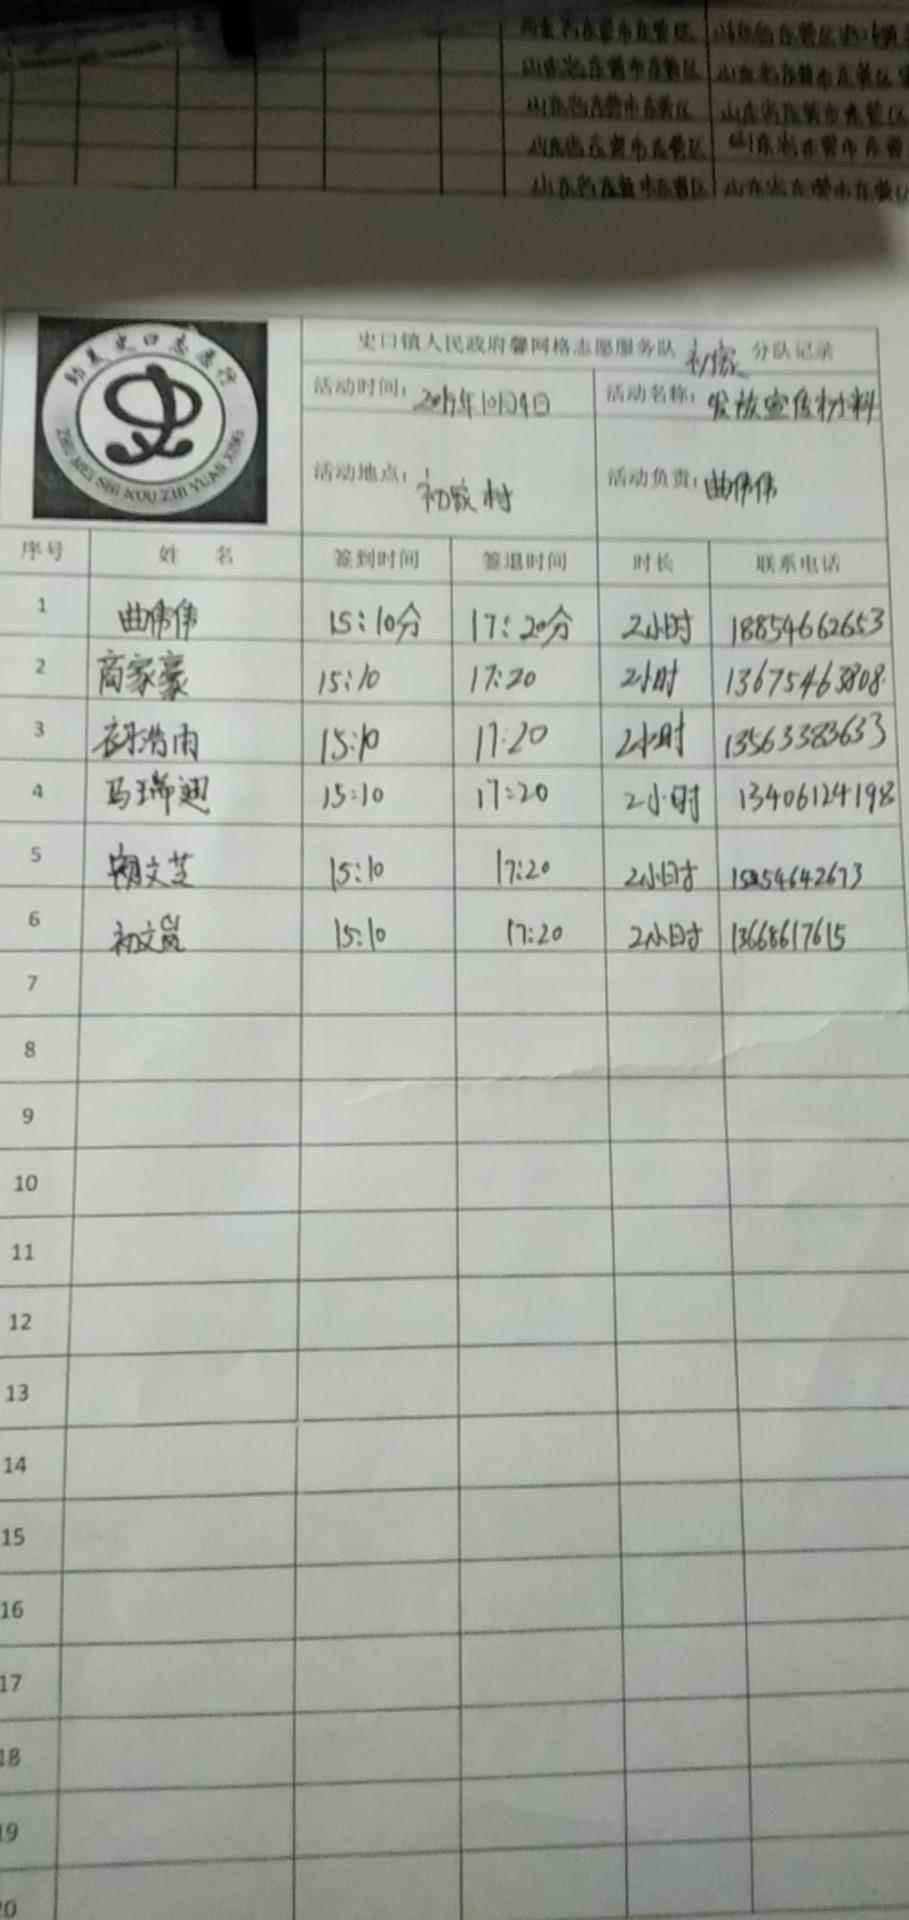 山东省东营市东营区
山东省东营市东营区 山东省东营市东营区
山东省东营市东营区 山东省东营市东营区
山东省东营市东营区 山东省东营市东营
山东省东营市东营区 山东省东营市东营区
史口志愿行
ZHU MEI SHI KOU ZHI YUAN XING
史口镇人民政府馨网格志愿服务队 初家 分队记录
活动时间: 2019年10月4日 活动名称: 发放宣传材料
活动地点: 初家村 活动负责: 曲伟伟
序号 姓 名 签到时间 签退时间 时长 联系电话
1 曲伟伟 15:10分 17:20分 2小时 18854662653
2 商家豪 15:10 17:20 2小时 13675463808
3 15:10 17:20 2小时 13563383633
4 马瑞翅 15:10 17:20 2小时 13406124198
5 文芝 15:10 17:20 2小时
6 初文岚 15:10 17:20 2小时 13668617615
7
8
9
10
11
12
13
14
15
16
17
18
19
20